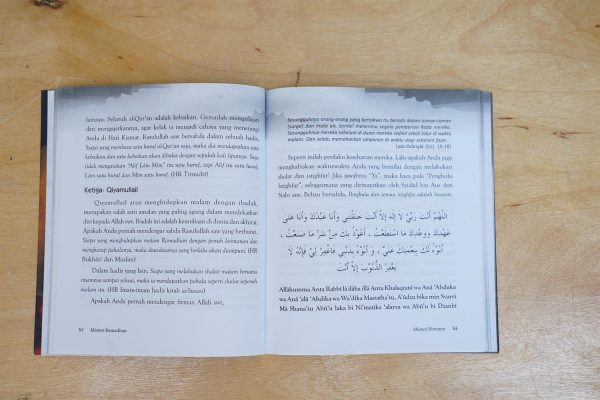 lainnya. Seluruh al-Qur'an adalah kebaikan. Gemarlah mempelajari
dan mengajarkannya, agar kelak ia menjadi cahaya yang menerangi
Anda di Hari Kiamat. Rasulullah saw bersabda dalam sebuah hadis,
Siapa yang membaca satu huruf al-Qur'an saja, maka dia mendapatkan satu
kebaikan dan satu kebaikan akan dibalas dengan sepuluh kali lipatnya. Saya
tidak mengatakan "Alif Lâm Mîm" itu satu huruf, tapi Alif itu satu huruf,
Lam satu huruf, dan Mim satu huruf. (HR Tirmidzi)
Ketiga: Qiyamullail
Qiyamullail atau menghidupkan malam dengan ibadah,
merupakan salah satu amalan yang paling agung dalam mendekatkan
diri kepada Allah swt. Ibadah ini adalah kemuliaan di dunia dan akhirat.
Apakah Anda pernah mendengar sabda Rasulullah saw yang berbunyi,
Siapa yang menghidupkan malam Ramadhan dengan penuh keimanan dan
mengharap pahalanya, maka dosa-dosanya yang berlalu akan diampuni. (HR
Bukhâri dan Muslim)
Dalam hadis yang lain, Siapa yang melakukan shalat malam bersama
imamnya sampai selesai, maka ia mendapatkan pahala seperti shalat sepenuh
malam itu. (HR Imam-imam hadis kitab as-Sunan)
Apakah Anda pernah mendengar firman Allah swt,
52 Misteri Ramadhan
Sesungguhnya orang-orang yang bertakwa itu berada dalam taman-taman
(surga) dan mata air, Sambil menerima segala pemberian Rabb mereka.
Sesungguhnya mereka sebelum di dunia mereka sedikit sekali tidur di waktu
malam. Dan selalu memohonkan ampunan di waktu pagi sebelum fajar.
(adz-Dzâriyât [51]: 15-18)
Seperti inilah perilaku keseharian mereka. Lalu apakah Anda juga
menghabiskan waktu-waktu Anda yang bernilai dengan melakukan
shalat dan istighfar? Jika jawabmu "Ya", maka baca pula "Penghulu
Istighfar", sebagaimana yang diriwayatkan oleh Syidâd bin Aus dari
Nabi saw. Beliau bersabda, Penghulu dari semua istighfar adalah bacaan:
اَللّٰهُمَّ أَنْتَ رَبِّيْ لَا إِلٰهَ إِلَّا أَنْتَ خَلَقْتَنِيْ وَأَنَا عَبْدُكَ وَأَنَا عَلَى
عَهْدِكَ وَوَعْدِكَ مَا اسْتَطَعْتُ ، أَعُوْذُ بِكَ مِنْ شَرِّ مَا صَنَعْتُ ،
أَبُوْءُ لَكَ بِنِعْمَتِكَ عَلَيَّ ، وَ أَبُوْءُ بِذَنْبِيْ فَاغْفِرْ لِيْ فَإِنَّهُ لَا
يَغْفِرُ الذُّنُوْبَ إِلَّا أَنْتَ
Allâhumma Anta Rabbî lâ ilâha illâ Anta Khalaqtanî wa Anâ 'Abduka
wa Anâ 'alâ 'Ahdika wa Wa'dika Mastatha'tu, A'ûdzu bika min Syarri
Mâ Shana'tu Abû'u laka bi Ni'matika 'alayya wa Abû'u bi Dzanbî
Misteri Pertama 53